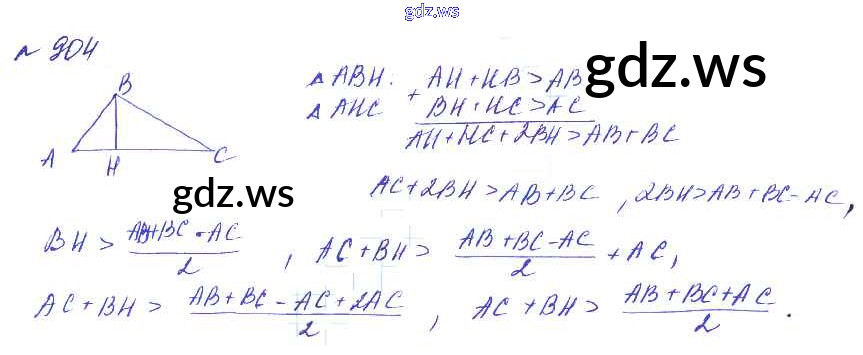 gdz.ws
№ 904
△ ABH: AH + HB > AB
gdz.ws
△ AHC + BH + HC > AC
AH + HC + 2BH > AB + BC
B
A H C
AC + 2BH > AB + BC, 2BH > AB + BC - AC,
gdz.ws
BH > (AB + BC - AC)/2, AC + BH > (AB + BC - AC)/2 + AC,
AC + BH > (AB + BC - AC + 2AC)/2, AC + BH > (AB + BC + AC)/2.